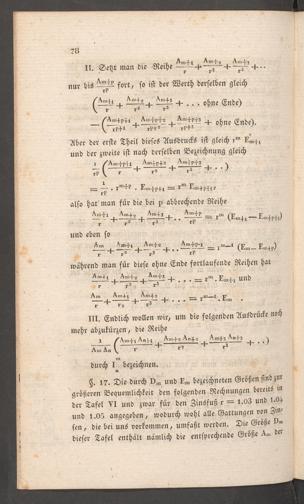 78
II. Setzt man die Reihe A_{m+1}/r + A_{m+2}/r² + A_{m+3}/r³ + ...
nur bis A_{m+p}/r^p fort, so ist der Werth derselben gleich
(A_{m+1}/r + A_{m+2}/r² + A_{m+3}/r³ + ... ohne Ende)
—(A_{m+p+1}/r^{p+1} + A_{m+p+2}/r^{p+2} + A_{m+p+3}/r^{p+3} + ohne Ende).
Aber der erste Theil dieses Ausdrucks ist gleich r^m E_{m+1}
und der zweite ist nach derselben Bezeichnung gleich
1/r^p (A_{m+p+1}/r + A_{m+p+2}/r² + A_{m+p+3}/r³ + ..)
= 1/r^p . r^{m+p} . E_{m+p+1} = r^m E_{m+p+1},
also hat man für die bei p abbrechende Reihe
A_{m+1}/r + A_{m+2}/r² + A_{m+3}/r³ + .. A_{m+p}/r^p = r^m (E_{m+1} — E_{m+p+1})
und eben so
A_m/r + A_{m+1}/r² + A_{m+2}/r³ + .. A_{m+p-1}/r^p = r^{m-1} (E_m — E_{m+p})
während man für diese ohne Ende fortlaufende Reihen hat
A_{m+1}/r + A_{m+2}/r² + A_{m+3}/r³ + ... = r^m . E_{m+1} und
A_m/r + A_{m+1}/r² + A_{m+2}/r³ + ... = r^{m-1} . E_m .
III. Endlich wollen wir, um die folgenden Ausdrücke noch
mehr abzukürzen, die Reihe
1/(A_m A_n) (A_{m+1} A_{n+1}/r + A_{m+2} A_{n+2}/r² + A_{m+3} A_{n+3}/r³ + ..)
durch bezeichnen.
§. 17. Die durch D_m und E_m bezeichneten Größen sind zur
größeren Bequemlichkeit den folgenden Rechnungen bereits in
der Tafel VI und zwar für den Zinsfuß r = 1.03 und 1.04
und 1.05 angegeben, wodurch wohl alle Gattungen von Zin-
sen, die bei uns vorkommen, umfaßt werden. Die Größe D_m
dieser Tafel enthält nämlich die entsprechende Größe A_m der